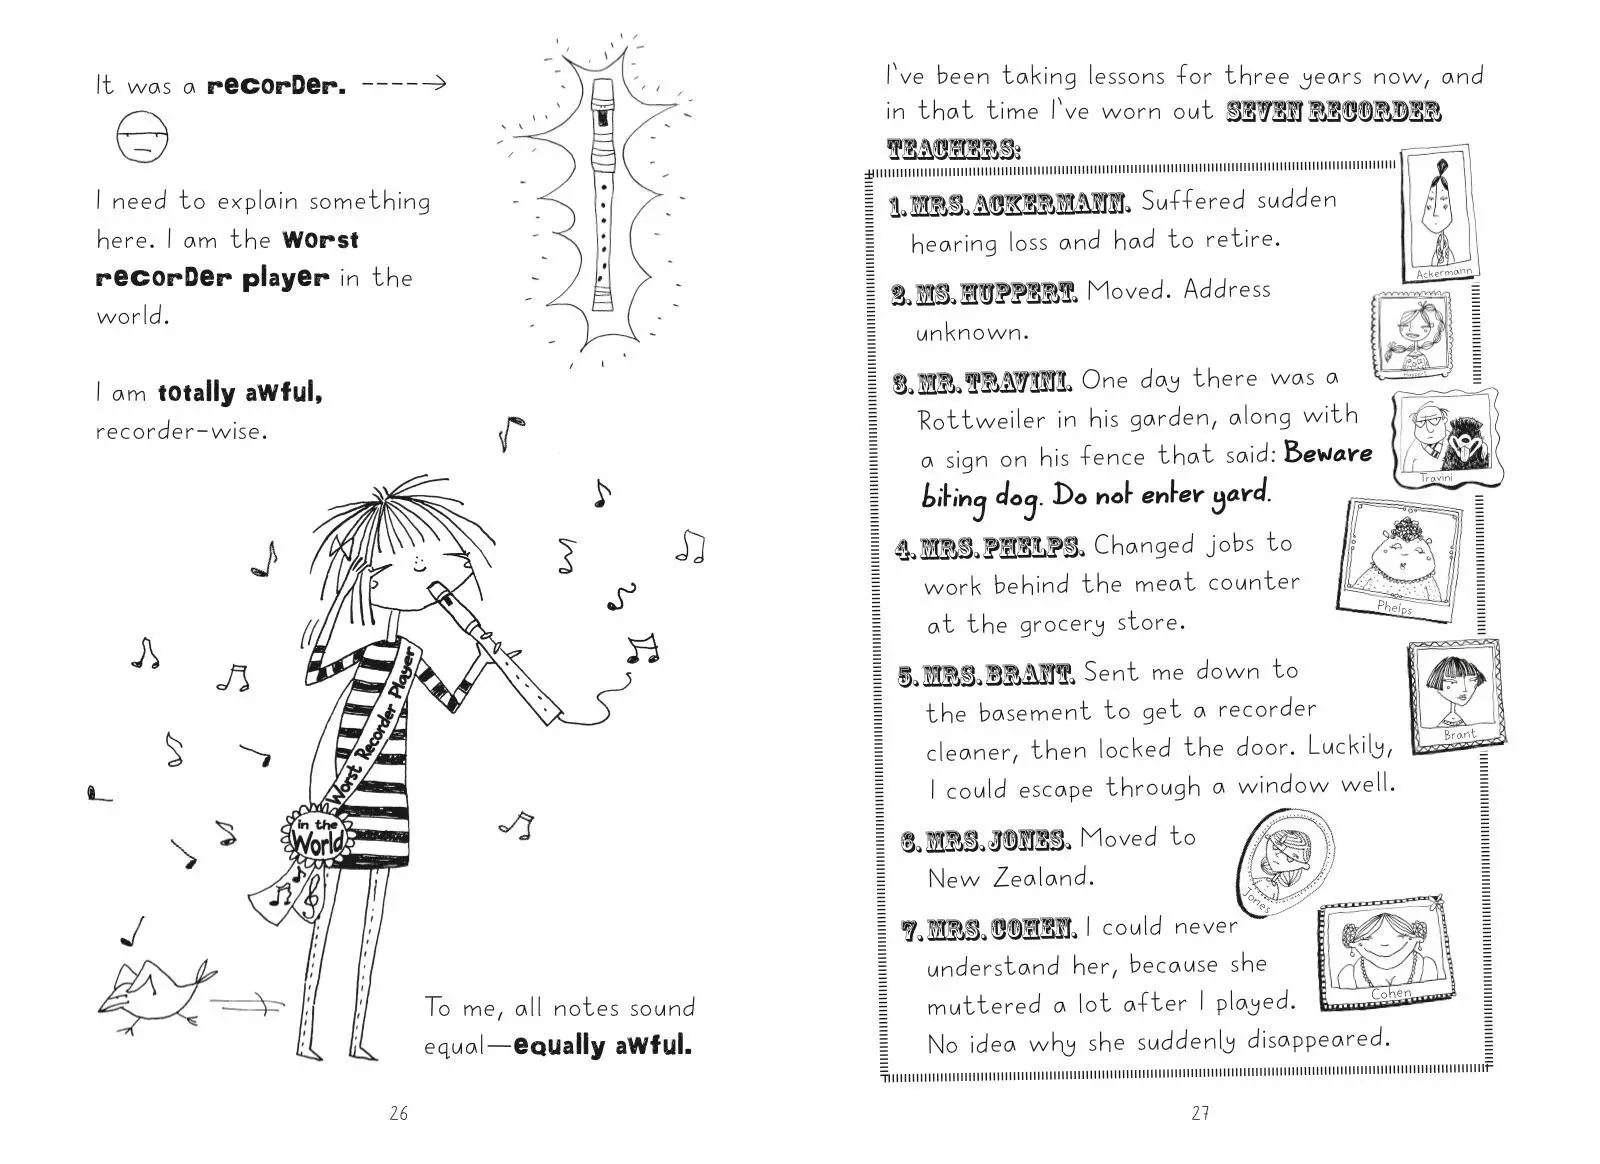 It was a recorder.
I need to explain something
here. I am the worst
recorder player in the
world.
I am totally awful,
recorder-wise.
Worst Recorder Player
in the
World
To me, all notes sound
equal—equally awful.
26
I've been taking lessons for three years now, and
in that time I've worn out SEVEN RECORDER
TEACHERS:
1. MRS. ACKERMANN. Suffered sudden
hearing loss and had to retire.
Ackermann
2. MS. HUPPERT. Moved. Address
unknown.
Huppert
3. MR. TRAVINI. One day there was a
Rottweiler in his garden, along with
a sign on his fence that said: Beware
biting dog. Do not enter yard.
Travini
4. MRS. PHELPS. Changed jobs to
work behind the meat counter
at the grocery store.
Phelps
5. MRS. BRANT. Sent me down to
the basement to get a recorder
cleaner, then locked the door. Luckily,
I could escape through a window well.
Brant
6. MRS. JONES. Moved to
New Zealand.
Jones
7. MRS. COHEN. I could never
understand her, because she
muttered a lot after I played.
No idea why she suddenly disappeared.
Cohen
27